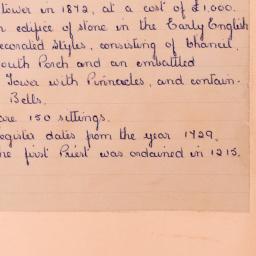 tower in 1872, at a cost of £1,000.
edifice of stone in the Early English
Decorated Styles, consisting of Chancel,
South Porch and an embattled
Tower with Pinnacles, and contain-
Bells.
are 150 sittings.
Register dates from the year 1729.
The first Priest was ordained in 1215.